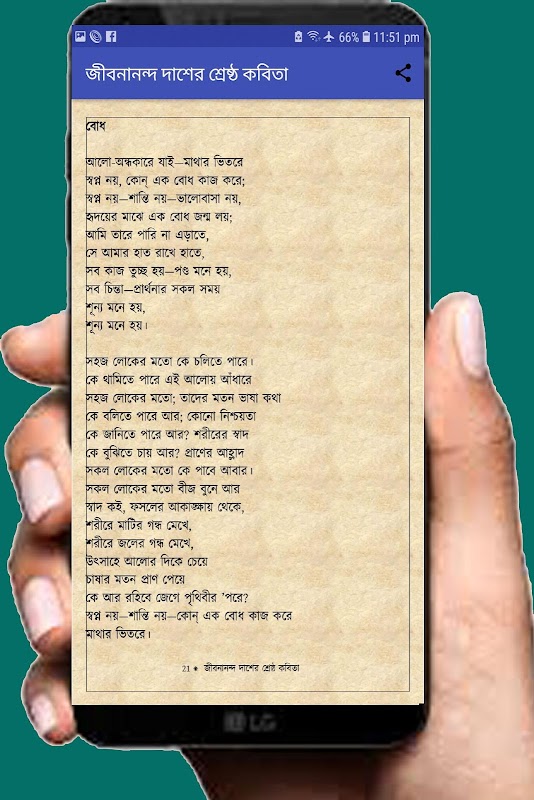 66% 11:51 pm
জীবনানন্দ দাশের শ্রেষ্ঠ কবিতা
বোধ
আলো-অন্ধকারে যাই—মাথার ভিতরে
স্বপ্ন নয়, কোন্ এক বোধ কাজ করে;
স্বপ্ন নয়—শান্তি নয়—ভালোবাসা নয়,
হৃদয়ের মাঝে এক বোধ জন্ম লয়;
আমি তারে পারি না এড়াতে,
সে আমার হাত রাখে হাতে,
সব কাজ তুচ্ছ হয়—পণ্ড মনে হয়,
সব চিন্তা—প্রার্থনার সকল সময়
শূন্য মনে হয়,
শূন্য মনে হয়।
সহজ লোকের মতো কে চলিতে পারে।
কে থামিতে পারে এই আলোয় আঁধারে
সহজ লোকের মতো; তাদের মতন ভাষা কথা
কে বলিতে পারে আর; কোনো নিশ্চয়তা
কে জানিতে পারে আর? শরীরের স্বাদ
কে বুঝিতে চায় আর? প্রাণের আহ্লাদ
সকল লোকের মতো কে পাবে আবার।
সকল লোকের মতো বীজ বুনে আর
স্বাদ কই, ফসলের আকাঙ্ক্ষায় থেকে,
শরীরে মাটির গন্ধ মেখে,
শরীরে জলের গন্ধ মেখে,
উৎসাহে আলোর দিকে চেয়ে
চাষার মতন প্রাণ পেয়ে
কে আর রহিবে জেগে পৃথিবীর 'পরে?
স্বপ্ন নয়—শান্তি নয়—কোন্ এক বোধ কাজ করে
মাথার ভিতরে।
21 ● জীবনানন্দ দাশের শ্রেষ্ঠ কবিতা
LG